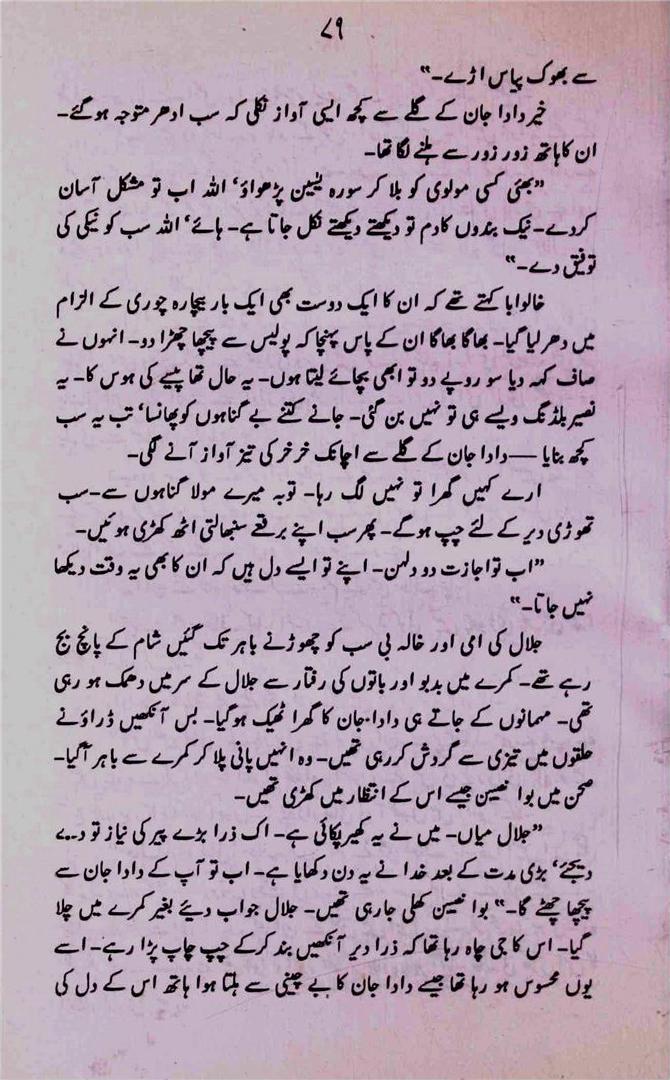 ۷۹
سے بھوک پیاس اڑے۔"
خیر دادا جان کے گلے سے کچھ ایسی آواز نکلی کہ سب ادھر متوجہ ہوگئے۔
ان کا ہاتھ زور زور سے ہلنے لگا تھا۔
"بھئی کسی مولوی کو بلا کر سورہ یٰسین پڑھواؤ، اللہ اب تو مشکل آسان
کردے۔ نیک بندوں کا دم تو دیکھتے دیکھتے نکل جاتا ہے۔ ہائے، اللہ سب کو نیکی کی
توفیق دے۔"
خالو ابا کہتے تھے کہ ان کا ایک دوست بھی ایک بار بیچارہ چوری کے الزام
میں دھر لیا گیا۔ بھاگا بھاگا ان کے پاس پہنچا کہ پولیس سے پیچھا چھڑا دو۔ انہوں نے
صاف کہہ دیا سو روپے دو تو ابھی بچائے لیتا ہوں۔ یہ حال تھا پیسے کی ہوس کا۔ یہ
نصیر بلڈنگ ویسے ہی تو نہیں بن گئی۔ جانے کتنے بے گناہوں کو پھانسا، تب یہ سب
کچھ بنایا — دادا جان کے گلے سے اچانک خرخر کی تیز آواز آنے لگی۔
ارے کہیں گھرا تو نہیں لگ رہا۔ توبہ میرے مولا گناہوں سے۔ سب
تھوڑی دیر کے لئے چپ ہوگے۔ پھر سب اپنے برقعے سنبھالتی اٹھ کھڑی ہوئیں۔
"اب تو اجازت دو دلہن۔ اپنے تو ایسے دل ہیں کہ ان کا بھی یہ وقت دیکھا
نہیں جاتا۔"
جلال کی امی اور خالہ بی سب کو چھوڑنے باہر تک گئیں شام کے پانچ بج
رہے تھے۔ کمرے میں بدبو اور باتوں کی رفتار سے جلال کے سر میں دھمک ہو رہی
تھی۔ مہمانوں کے جاتے ہی دادا جان کا گھرا ٹھیک ہوگیا۔ بس آنکھیں ڈراؤنے
حلقوں میں تیزی سے گردش کر رہی تھیں۔ وہ انہیں پانی پلا کر کمرے سے باہر آگیا۔
صحن میں بوا نصیبن جیسے اس کے انتظار میں کھڑی تھیں۔
"جلال میاں۔ میں نے یہ کھیر پکائی ہے۔ اک ذرا بڑے پیر کی نیاز تو دے
دیجئے، بڑی مدت کے بعد خدا نے یہ دن دکھایا ہے۔ اب تو آپ کے دادا جان سے
پیچھا چھٹے گا۔" بوا نصیبن کھلی جارہی تھیں۔ جلال جواب دیئے بغیر کمرے میں چلا
گیا۔ اس کا جی چاہ رہا تھا کہ ذرا دیر آنکھیں بند کرکے چپ چاپ پڑا رہے۔ اسے
یوں محسوس ہو رہا تھا جیسے دادا جان کا بے چینی سے ہلتا ہوا ہاتھ اس کے دل کی